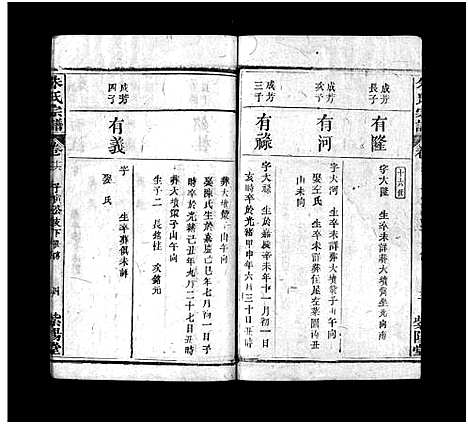 成芳
長子
有隆
字大隆 生卒未詳葬大墳黄坐北向南
成芳
次子
有河
字大河 生卒未詳葬大墳 子山午向
娶左氏 生卒未詳葬住屋左菜園內丑
山未向
成芳
三子
有祿
字大祿 生於嘉慶辛未年十一月初一日
亥時卒於光緒甲申年六月三十日丑時
葬大墳 山午向
娶陳氏生於嘉慶己巳年七月初一日子
時卒於光緒己丑年九月二十七日丑時
葬大墳 子山午向
生子二 長銘柱 次銘元
成芳
四子
有義
字 生卒葬俱未詳
娶 氏
朱氏宗譜
卷六
紫陽堂